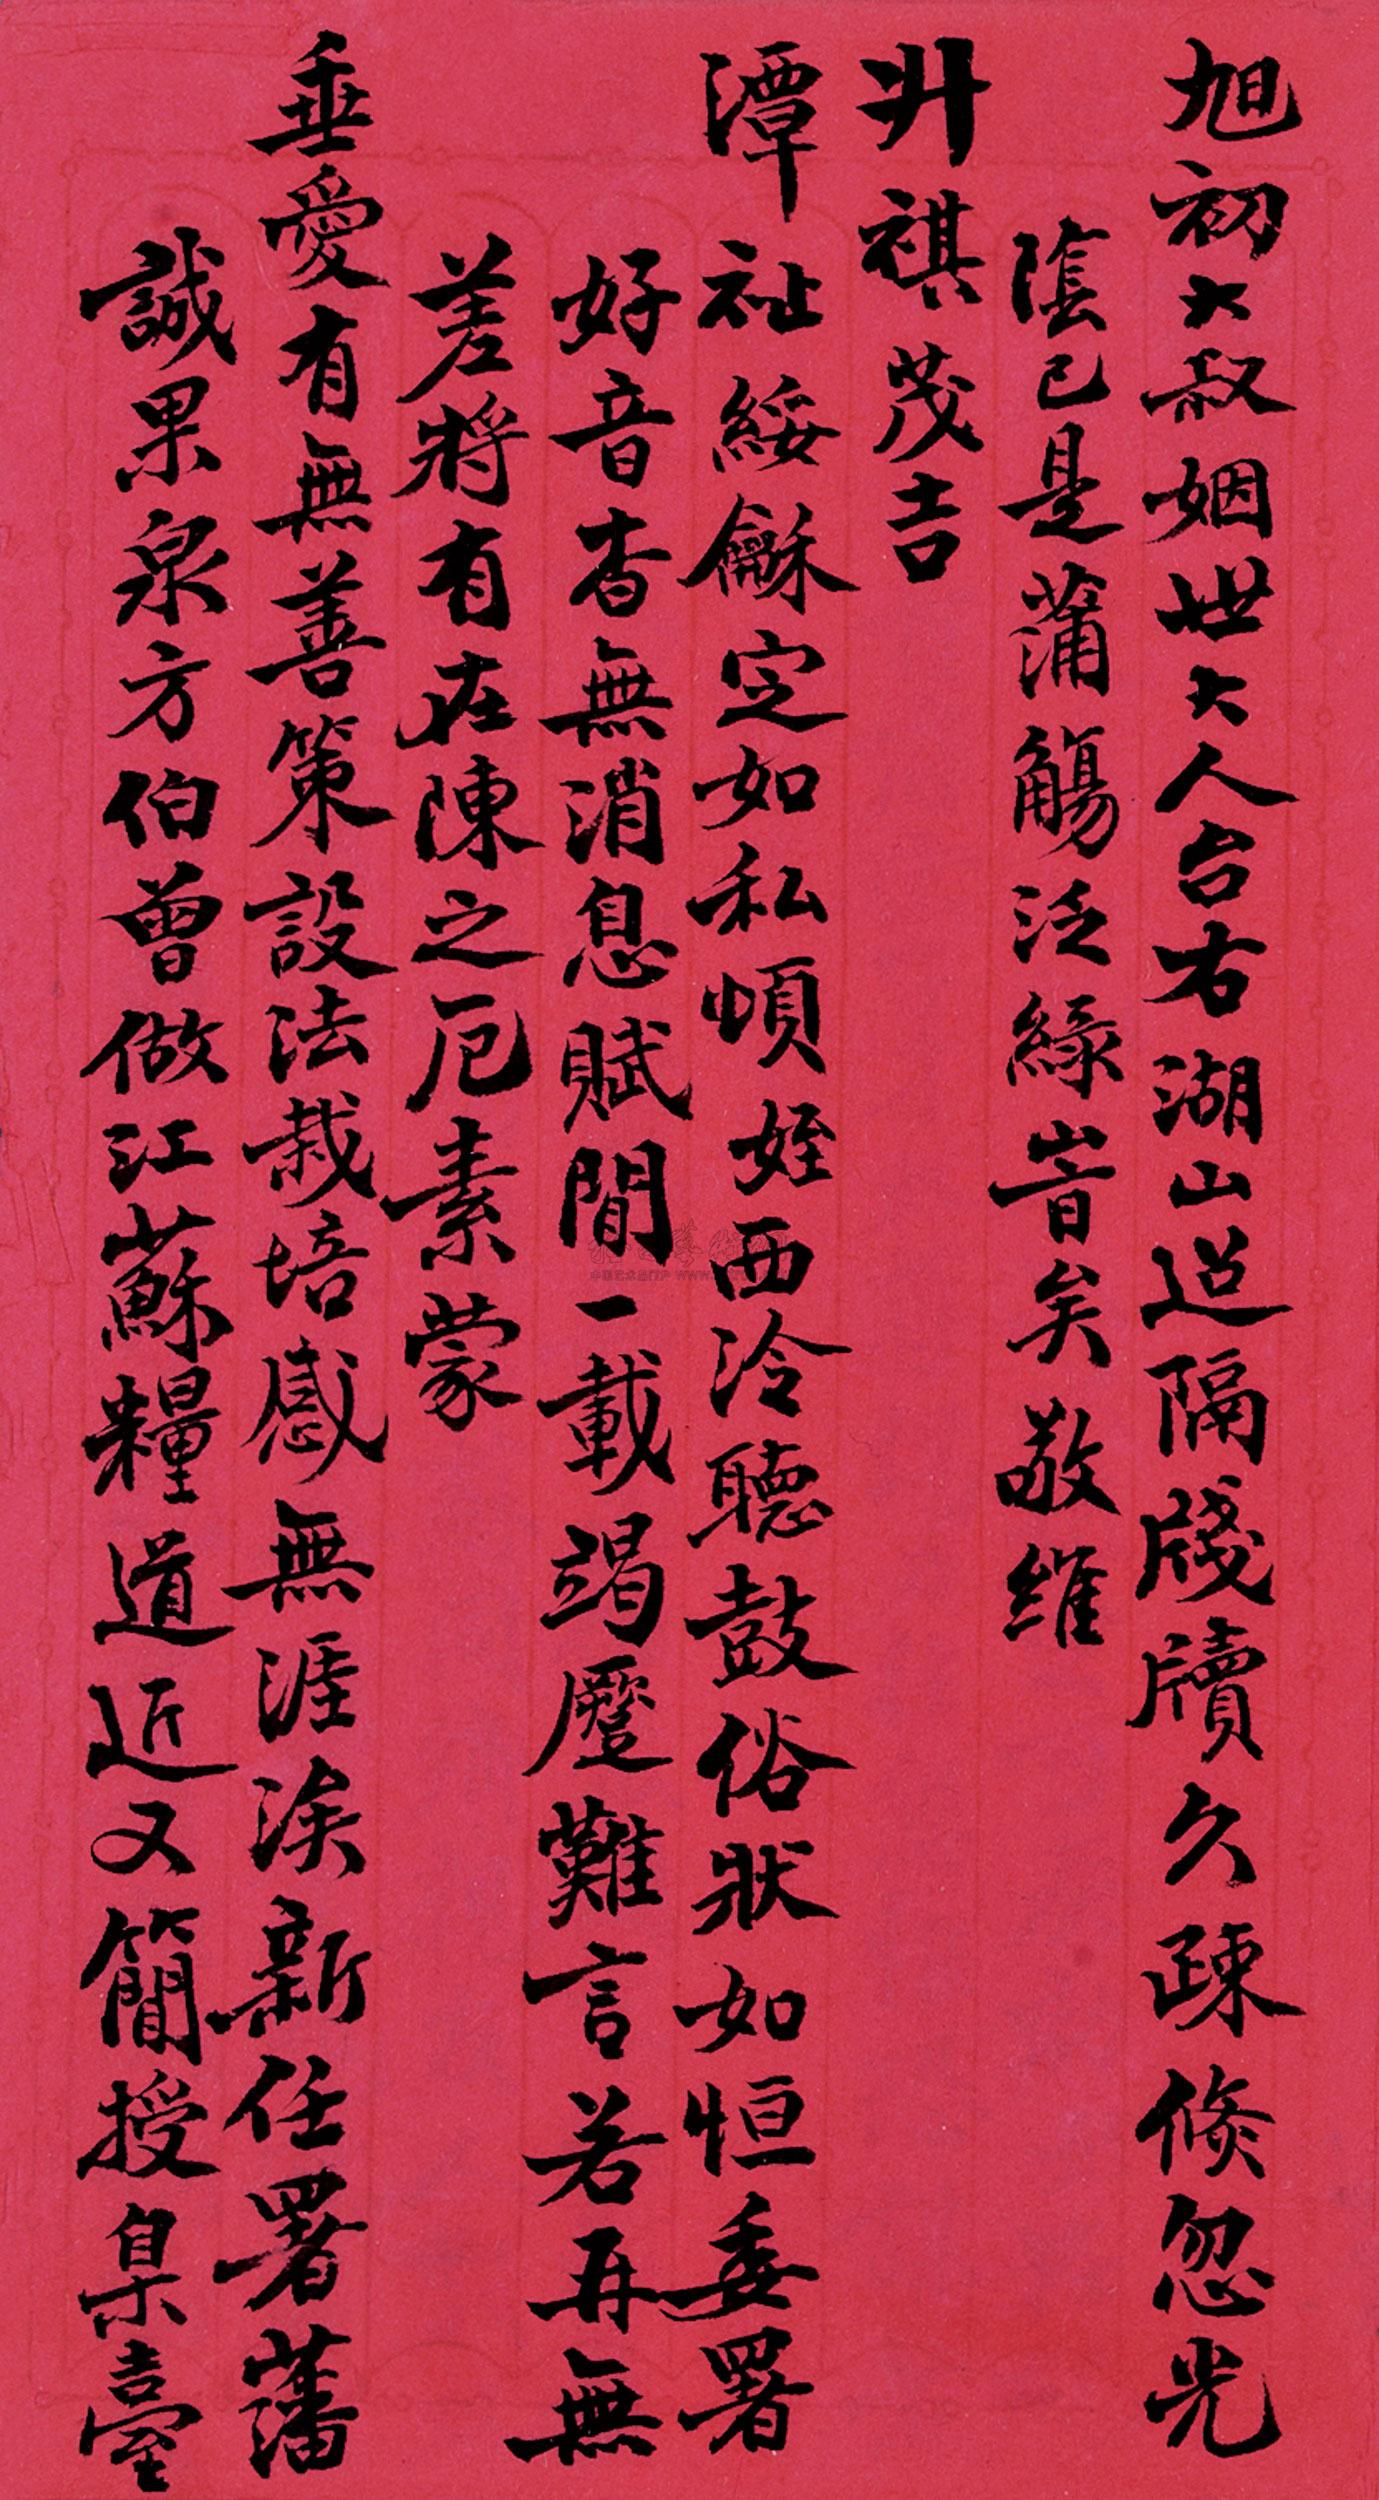 旭初大叔姻世大人台右湖山迢隔牋牘久疎倏忽光
陰已是蒲觴泛綠音矣敬維
升祺茂吉
潭祉綏龢定如私頌姪西泠聽鼓俗狀如恒委署
好音杳無消息賦閒一載竭蹷難言若再無
差將有在陳之厄素蒙
垂愛有無善策設法栽培感無涯涘新任署藩
誠果泉方伯曾做江蘇糧道近又簡授臬臺